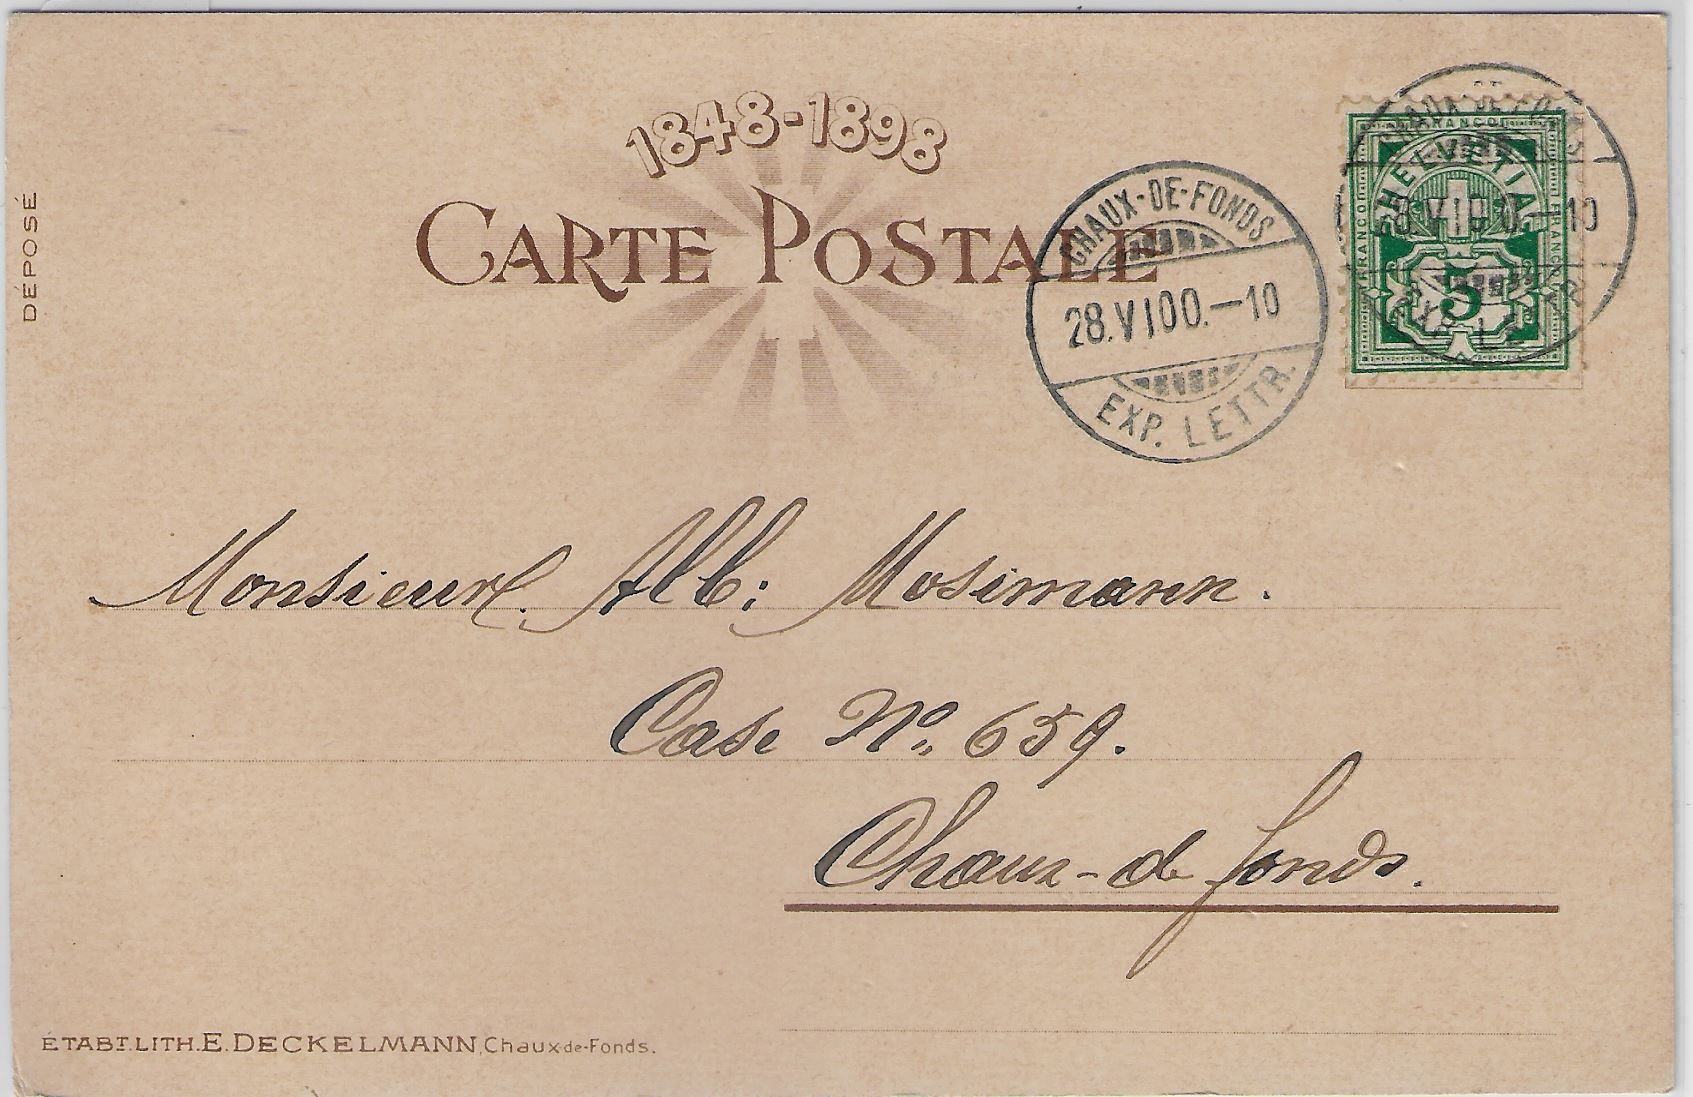 1848-1898
CARTE POSTALE
DÉPOSÉ
CHAUX-DE-FONDS
28.VI00.—10
EXP. LETTR.
FRANCO
HELVETIA
FRANCO
FRANCO
5
—10
Monsieur Alb: Mosimann.
Case No. 659.
Chaux-de fonds.
ÉTABT. LITH. E. DECKELMANN, Chaux-de-Fonds.